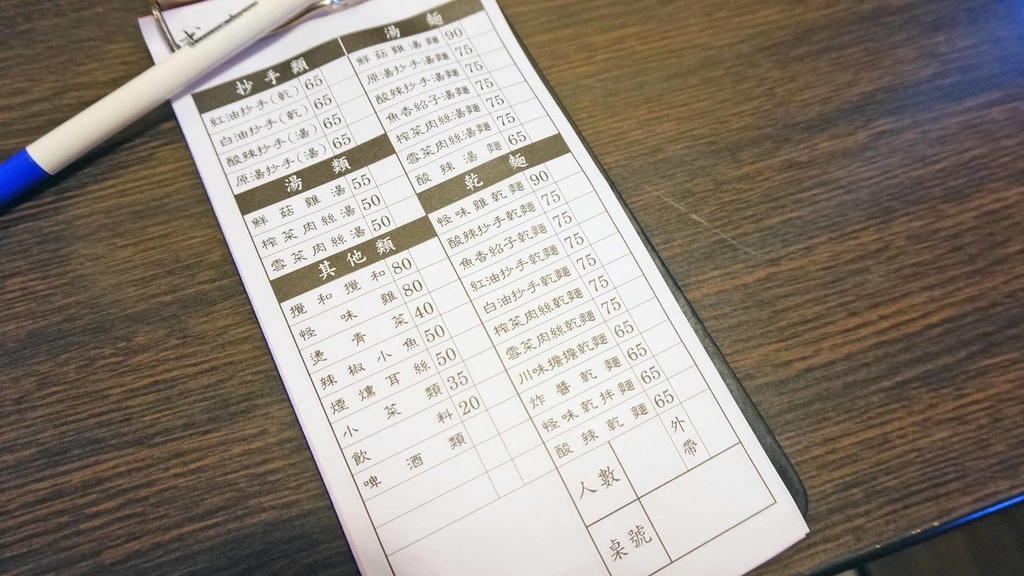 抄手類
紅油抄手(乾) 65
白油抄手(乾) 65
酸辣抄手(湯) 65
原湯抄手(湯) 65
湯類
鮮菇雞湯 55
榨菜肉絲湯 50
雪菜肉絲湯 50
其他類
攪和攪和 80
怪味雞 80
燙青菜 40
辣椒小魚 50
煙燻耳絲 50
小菜類 35
飲料 20
啤酒類
湯麵
鮮菇雞湯麵 90
原湯抄手湯麵 75
酸辣抄手湯麵 75
魚香紹子湯麵 75
榨菜肉絲湯麵 75
雪菜肉絲湯麵 75
酸辣湯麵 65
乾麵
怪味雞乾麵 90
酸辣抄手乾麵 75
魚香紹子乾麵 75
紅油抄手乾麵 75
白油抄手乾麵 75
榨菜肉絲乾麵 75
雪菜肉絲乾麵 75
川味擔擔乾麵 65
炸醬乾麵 65
怪味乾拌麵 65
酸辣乾麵 65
人數
外帶
桌號